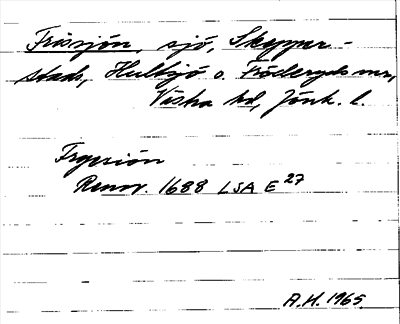 Frissjön, sjö, Skepper-
stads, Hultsjö o. Fröderyds snr,
Västra hd, Jönk. l.
Frysiön
Renov. 1688 LSA E 27
A.H. 1965